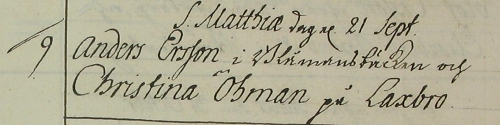 S. Matthiæ dag. 21 Sept.
9 Anders Ersson i Uhlmansbäcken och
Christina Öhman på Laxbro.